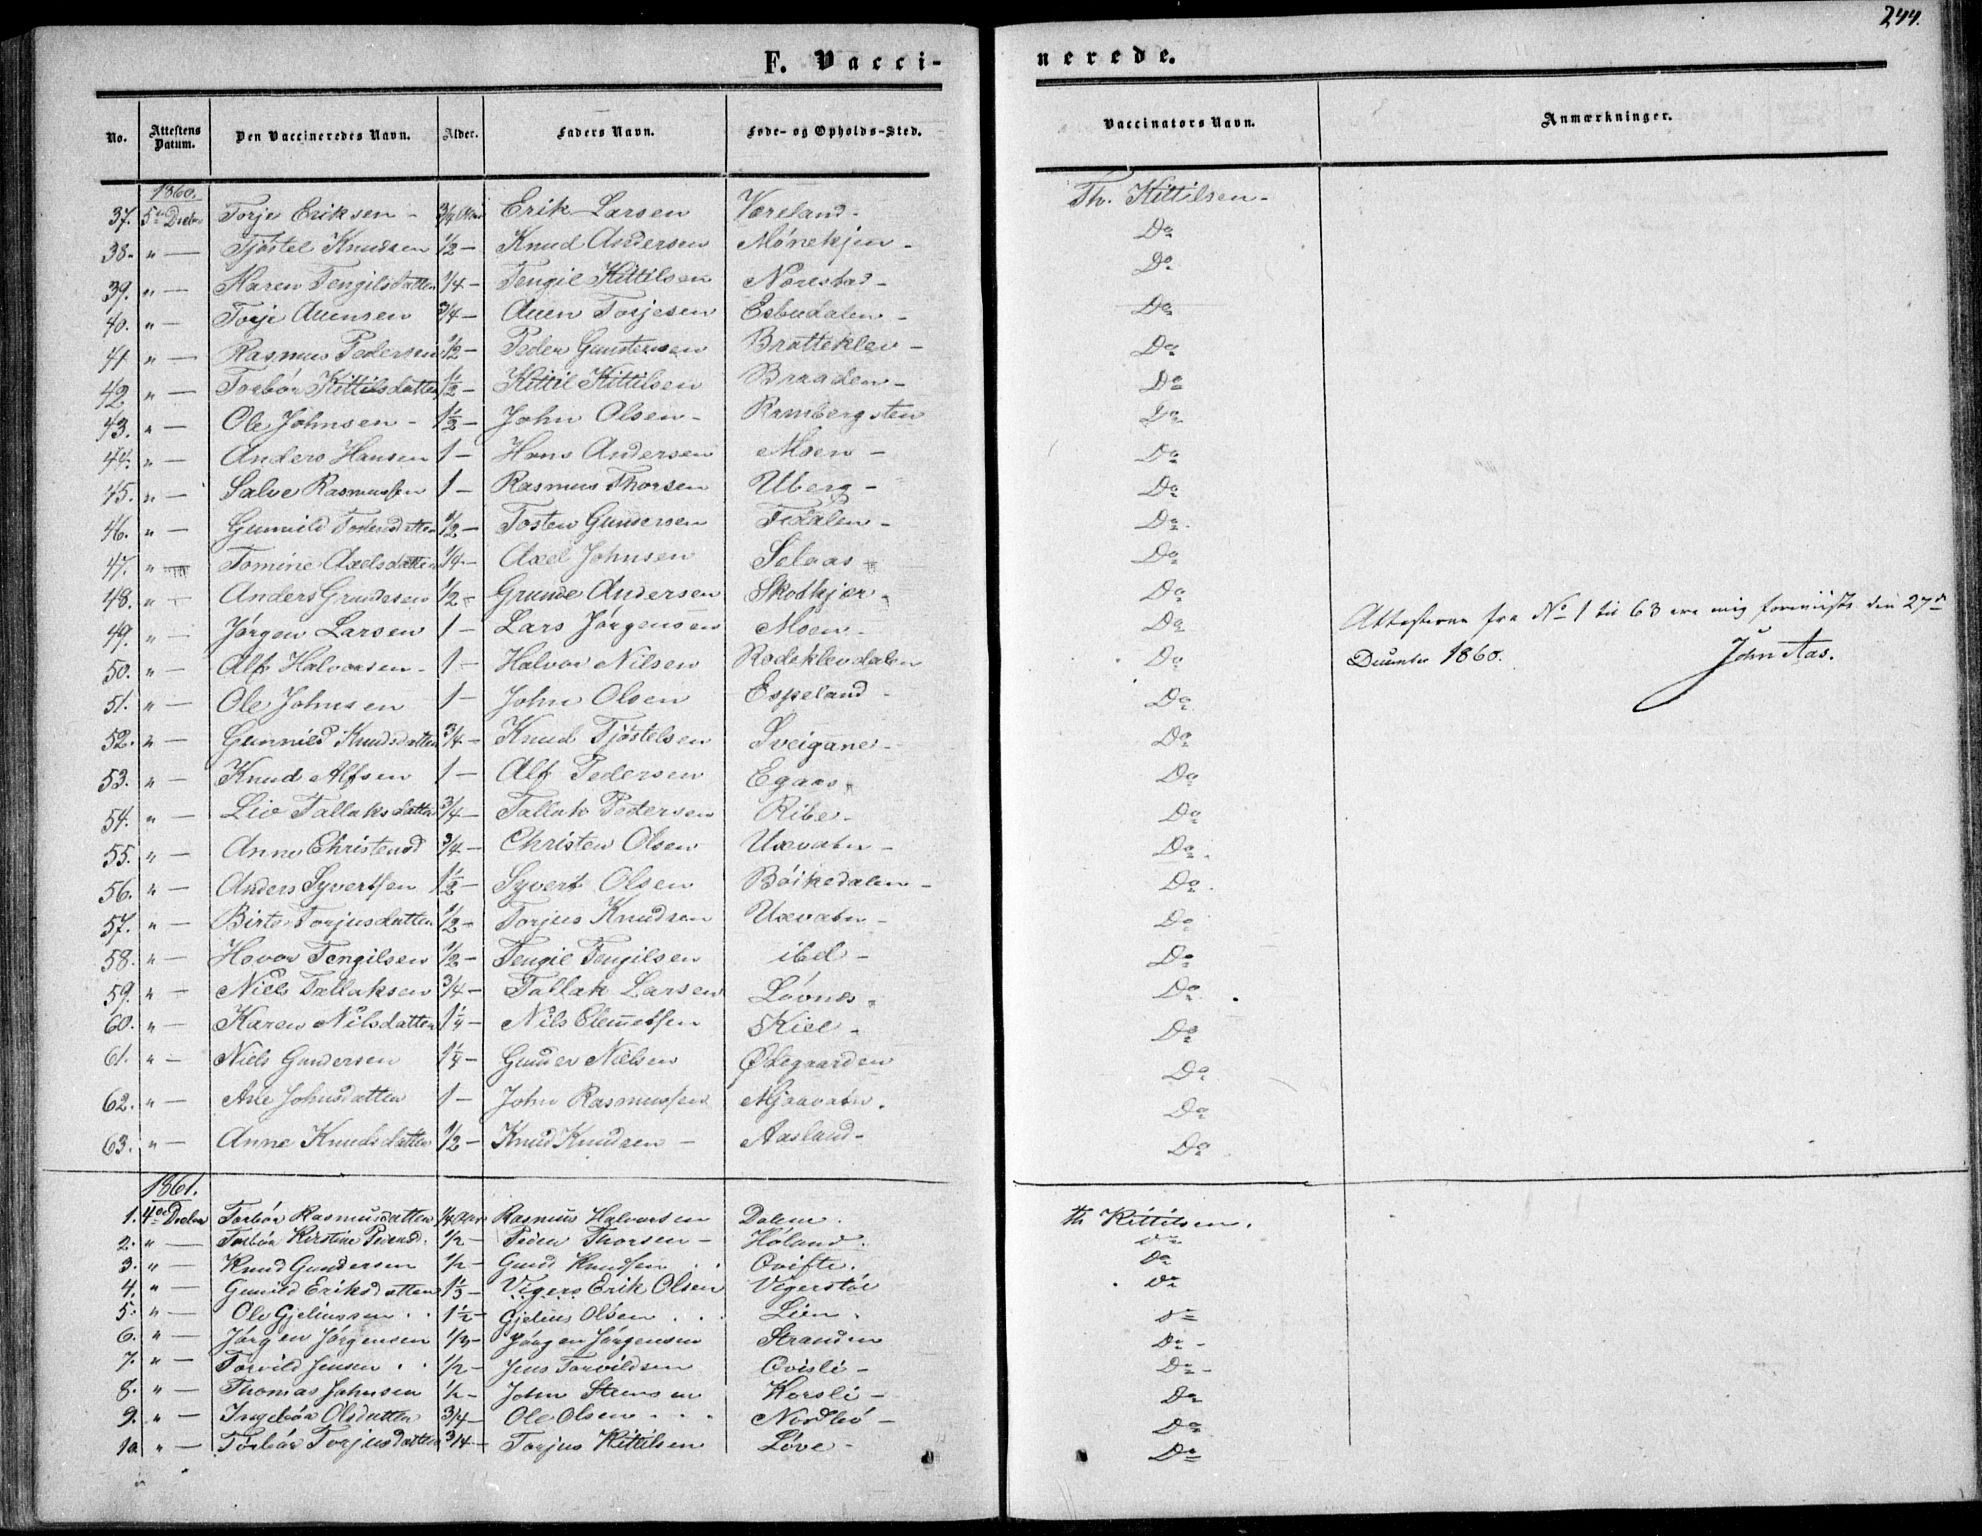 244.
F. Vaccinerede.
No. Attestens Datum. Den Vaccineredes Navn. Alder. Faders Navn. Føde- og Opholds-Sted. Vaccinators Navn. Anmærkninger.
1860.
37. 5te Decbr Torje Eriksen - 3/4 Aar Erik Larsen Væreland - Th. Kittilsen -
38. " — Tjøstel Knudsen 1/2 — Knud Andersen Mønekjen - Do
39. " — Karen Tengilsdatter 1/4 — Tengil Kittilsen Nørestad - Do
40. " — Torje Auensen 3/4 — Auen Torjesen Esbudalen - Do
41 " — Rasmus Pedersen 1/2 — Peder Gundersen Bratteklev - Do
42 " — Torbør Kittilsdatter 1/2 — Kittil Kittilsen Braaden - Do
43. " — Ole Johnsen - 1 1/2 — John Olsen - Rambergsten Do
44. " — Anders Hansen 1 — Hans Andersen Moen - Do
45. " — Salve Rasmussen 1 — Rasmus Thorsen Uberg - Do
46. " — Gunnild Tostensdatter 1/2 — Tosten Gundersen Fidalen - Do
47. " — Tomine Axelsdatter 1/4 — Axel Johnsen Selaas - Do
48. " — Anders Grundesen 1/2 — Grunde Andersen Skodkjær - Do
49. " — Jørgen Larsen 1 — Lars Jørgensen Moen - Do
Attesterne fra No 1 til 63 ere mig foreviiste den 27de
50. " — Alf Halvorsen - 1 — Halvor Nilsen Rødeklevdalen Do
December 1860. John Aas.
51. " — Ole Johnsen 1 — John Olsen Espeland - Do
52. " — Gunnild Knudsdatter 3/4 — Knud Tjøstelsen Sveigane - Do
53. " — Knud Alfsen 1 — Alf Pedersen Egaas - Do
54. " — Liv Tallaksdatter 3/4 — Tallak Pedersen Ribe - Do
55. " — Anne Christensd 3/4 — Christen Olsen Uxvatn - Do
56. " — Anders Syvertsen 1 1/2 — Syvert Olsen Bøikedalen - Do
57. " — Birte Torjusdatter 1/2 — Torjus Knudsen Uxvatn - Do
58. " — Hovor Tengilsen 1/2 — Tengil Tengilsen ibd - Do
59. " — Niels Tallaksen 3/4 — Tallak Larsen Løvnes - Do
60. " — Karen Nilsdatter 1 1/4 — Nils Clemetsen Kiil - Do
61. " — Niels Gundersen 1 1/4 — Gunder Nielsen Ødegaarden Do
62. " — Ane Johnsdatter 1 — John Rasmussen Mjaavatn. Do
63. " — Anne Knudsdatter 1/2 — Knud Knudsen - Aasland - Do
1861.
1. 4de Decbr Torbør Rasmusdatter 1/4 Aar Rasmus Halvorsen Dalem. Th Kittilsen.
2. " — Torbør Kirstine Pedersd. 1/2 — Peder Thorsen - Høland. Do
3. " — Knud Gundersen 1/2 — Gund Knudsen Qvifte. Do
4. " — Gunild Eriksdatter 1 1/3 — Erik Olsen Vegerstøl Do
5. " — Ole Gjeliussen 1 1/2 — Gjelius Olsen Lien. Do
6. " — Jørgen Jørgensen 1/3 — Jørgen Jørgensen Stranden Do
7. " — Torvild Jensen 1/2 — Jens Torvildsen Qvisli - Do
8. " — Thomas Johnsen 1/2 — John Stensen Korsli - Do
9. " — Ingebør Olsdatter 3/4 — Ole Olsen Nordbø - Do
10 " — Torbør Torjusdatter 3/4 — Torjus Kittilsen Løve - Do